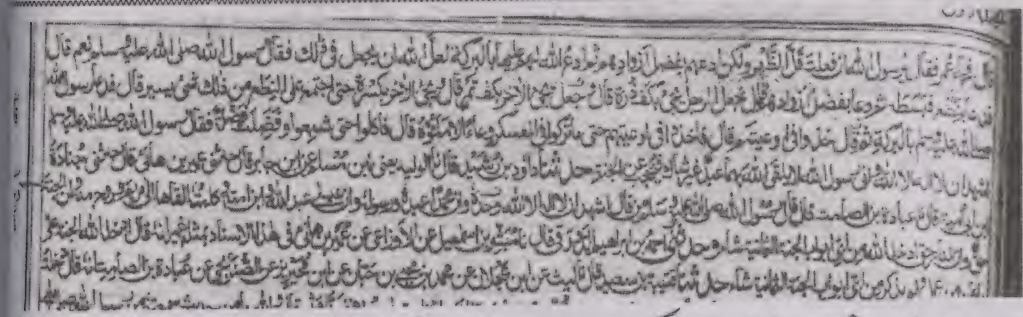 قال فجاء عمر فقال يا رسول الله ان فعلت قل الظهر ولكن ادعهم بفضل ازوادهم ثم ادع الله لهم عليها بالبركة لعل الله ان يجعل في ذلك فقال رسول الله صلى الله عليه وسلم نعم قال
فدعا بنطع فبسطه ثم دعا بفضل ازوادهم قال فجعل الرجل يجئ بكف ذرة قال ويجئ الاخر بكف تمر قال ويجئ الاخر بكسرة حتى اجتمع على النطع من ذلك شئ يسير قال فدعا رسول الله
صلى الله عليه وسلم بالبركة ثم قال خذوا في اوعيتكم قال فاخذوا في اوعيتهم حتى ما تركوا في العسكر وعاء الا ملؤه قال فاكلوا حتى شبعوا وفضلت فضلة فقال رسول الله صلى الله عليه وسلم
اشهد ان لا اله الا الله واني رسول الله لا يلقى الله بهما عبد غير شاك فيحجب عن الجنة حدثنا داود بن رشيد قال نا الوليد يعني ابن مسلم عن ابن جابر قال حدثني عمير بن هانئ قال حدثني جنادة
بن ابي امية قال نا عبادة بن الصامت قال قال رسول الله صلى الله عليه وسلم من قال اشهد ان لا اله الا الله وحده وان محمدا عبده ورسوله وان عيسى عبد الله وابن امته وكلمته القاها الى مريم وروح منه وان الجنة
حق وان النار حق ادخله الله من اي ابواب الجنة الثمانية شاء وحدثني احمد بن ابراهيم الدورقي قال نا مبشر بن اسمعيل عن الاوزاعي عن عمير بن هانئ في هذا الاسناد بمثله غير انه قال ادخله الله الجنة على
ما كان من عمل ولم يذكر من اي ابواب الجنة الثمانية شاء حدثنا قتيبة بن سعيد قال نا ليث عن ابن عجلان عن محمد بن يحيى بن حبان عن ابن محيريز عن الصنابحي عن عبادة بن الصامت انه قال دخلت